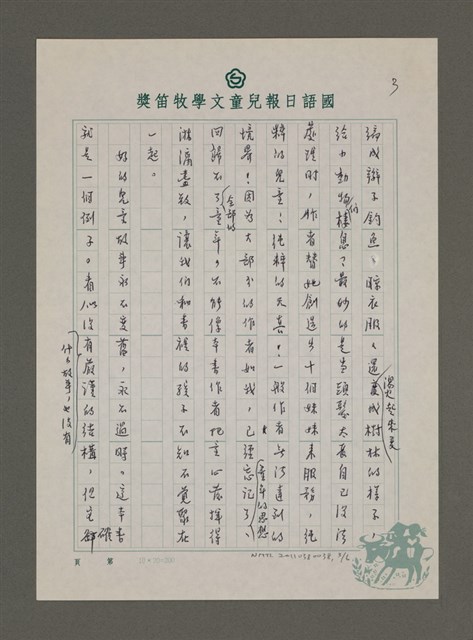 3
國語日報兒童文學牧笛獎
編成辮子釣魚、晾衣服、還變成樹林的樣子,
給小動物們棲息?最妙的是當頭髮太長自己沒法
處理時,作者替她創造出十個妹妹來服務,純
粹的兒童!純粹的天真!一般作者無法達到的
境界!因為大部分的作者如我,已經忘記了、
童年的思想
回歸不了全部的童年,不能像本書作者把童心發揮得
淋漓盡致,讓我們和書裡的孩子不知不覺聚在
一起。
好的兒童故事永不變舊,永不過時。這本書
就是一個例子。看似沒有嚴謹的結構,
什么故事,也沒有
但它
第 頁